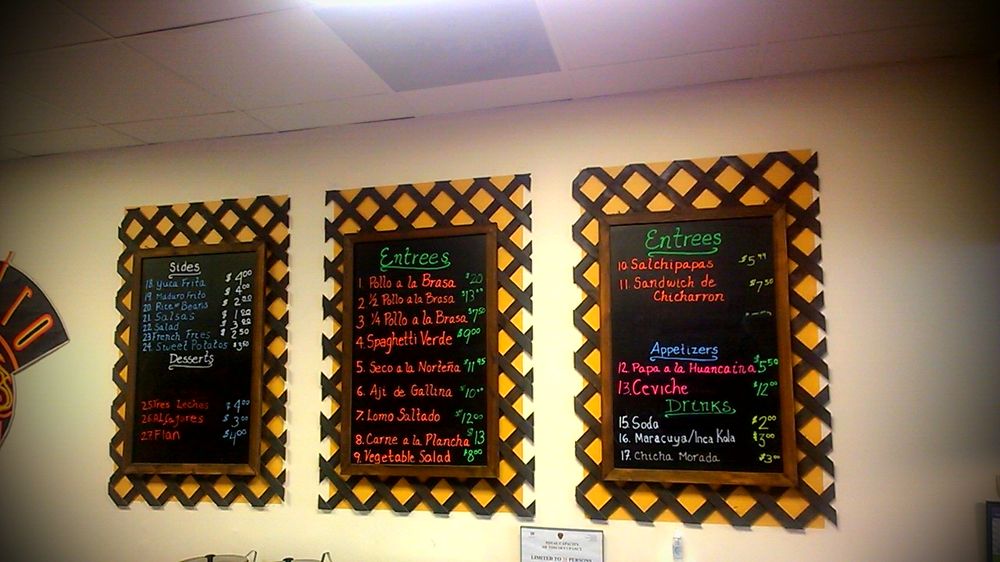 Sides
18 Yuca Frita $4.00
19 Maduro Frito $4.00
20 Rice or Beans $2.00
21. Salsas $1.00
22 Salad $3.00
23 French Fries $2.50
24. Sweet Potatos $3.50
Desserts
25 Tres Leches $4.00
26 Alfajores $3.00
27 Flan $4.00
Entrees
1. Pollo a la Brasa $20
2 1/2 Pollo a la Brasa $13
3 1/4 Pollo a la Brasa $7.50
4. Spaghetti Verde $9.00
5. Seco a la Norteña $11.95
6. Aji de Gallina $10
7. Lomo Saltado $12.00
8. Carne a la Plancha $13
9. Vegetable Salad $8.00
Entrees
10 Salchipapas $5.99
11 Sandwich de $7.50
Chicharron
Appetizers
12 Papa a la Huancaina $5.50
13. Ceviche $12.00
Drinks
15. Soda $2.00
16. Maracuya/Inca Kola $3.00
17. Chicha Morada $3.00
LIMITED TO PERSONS